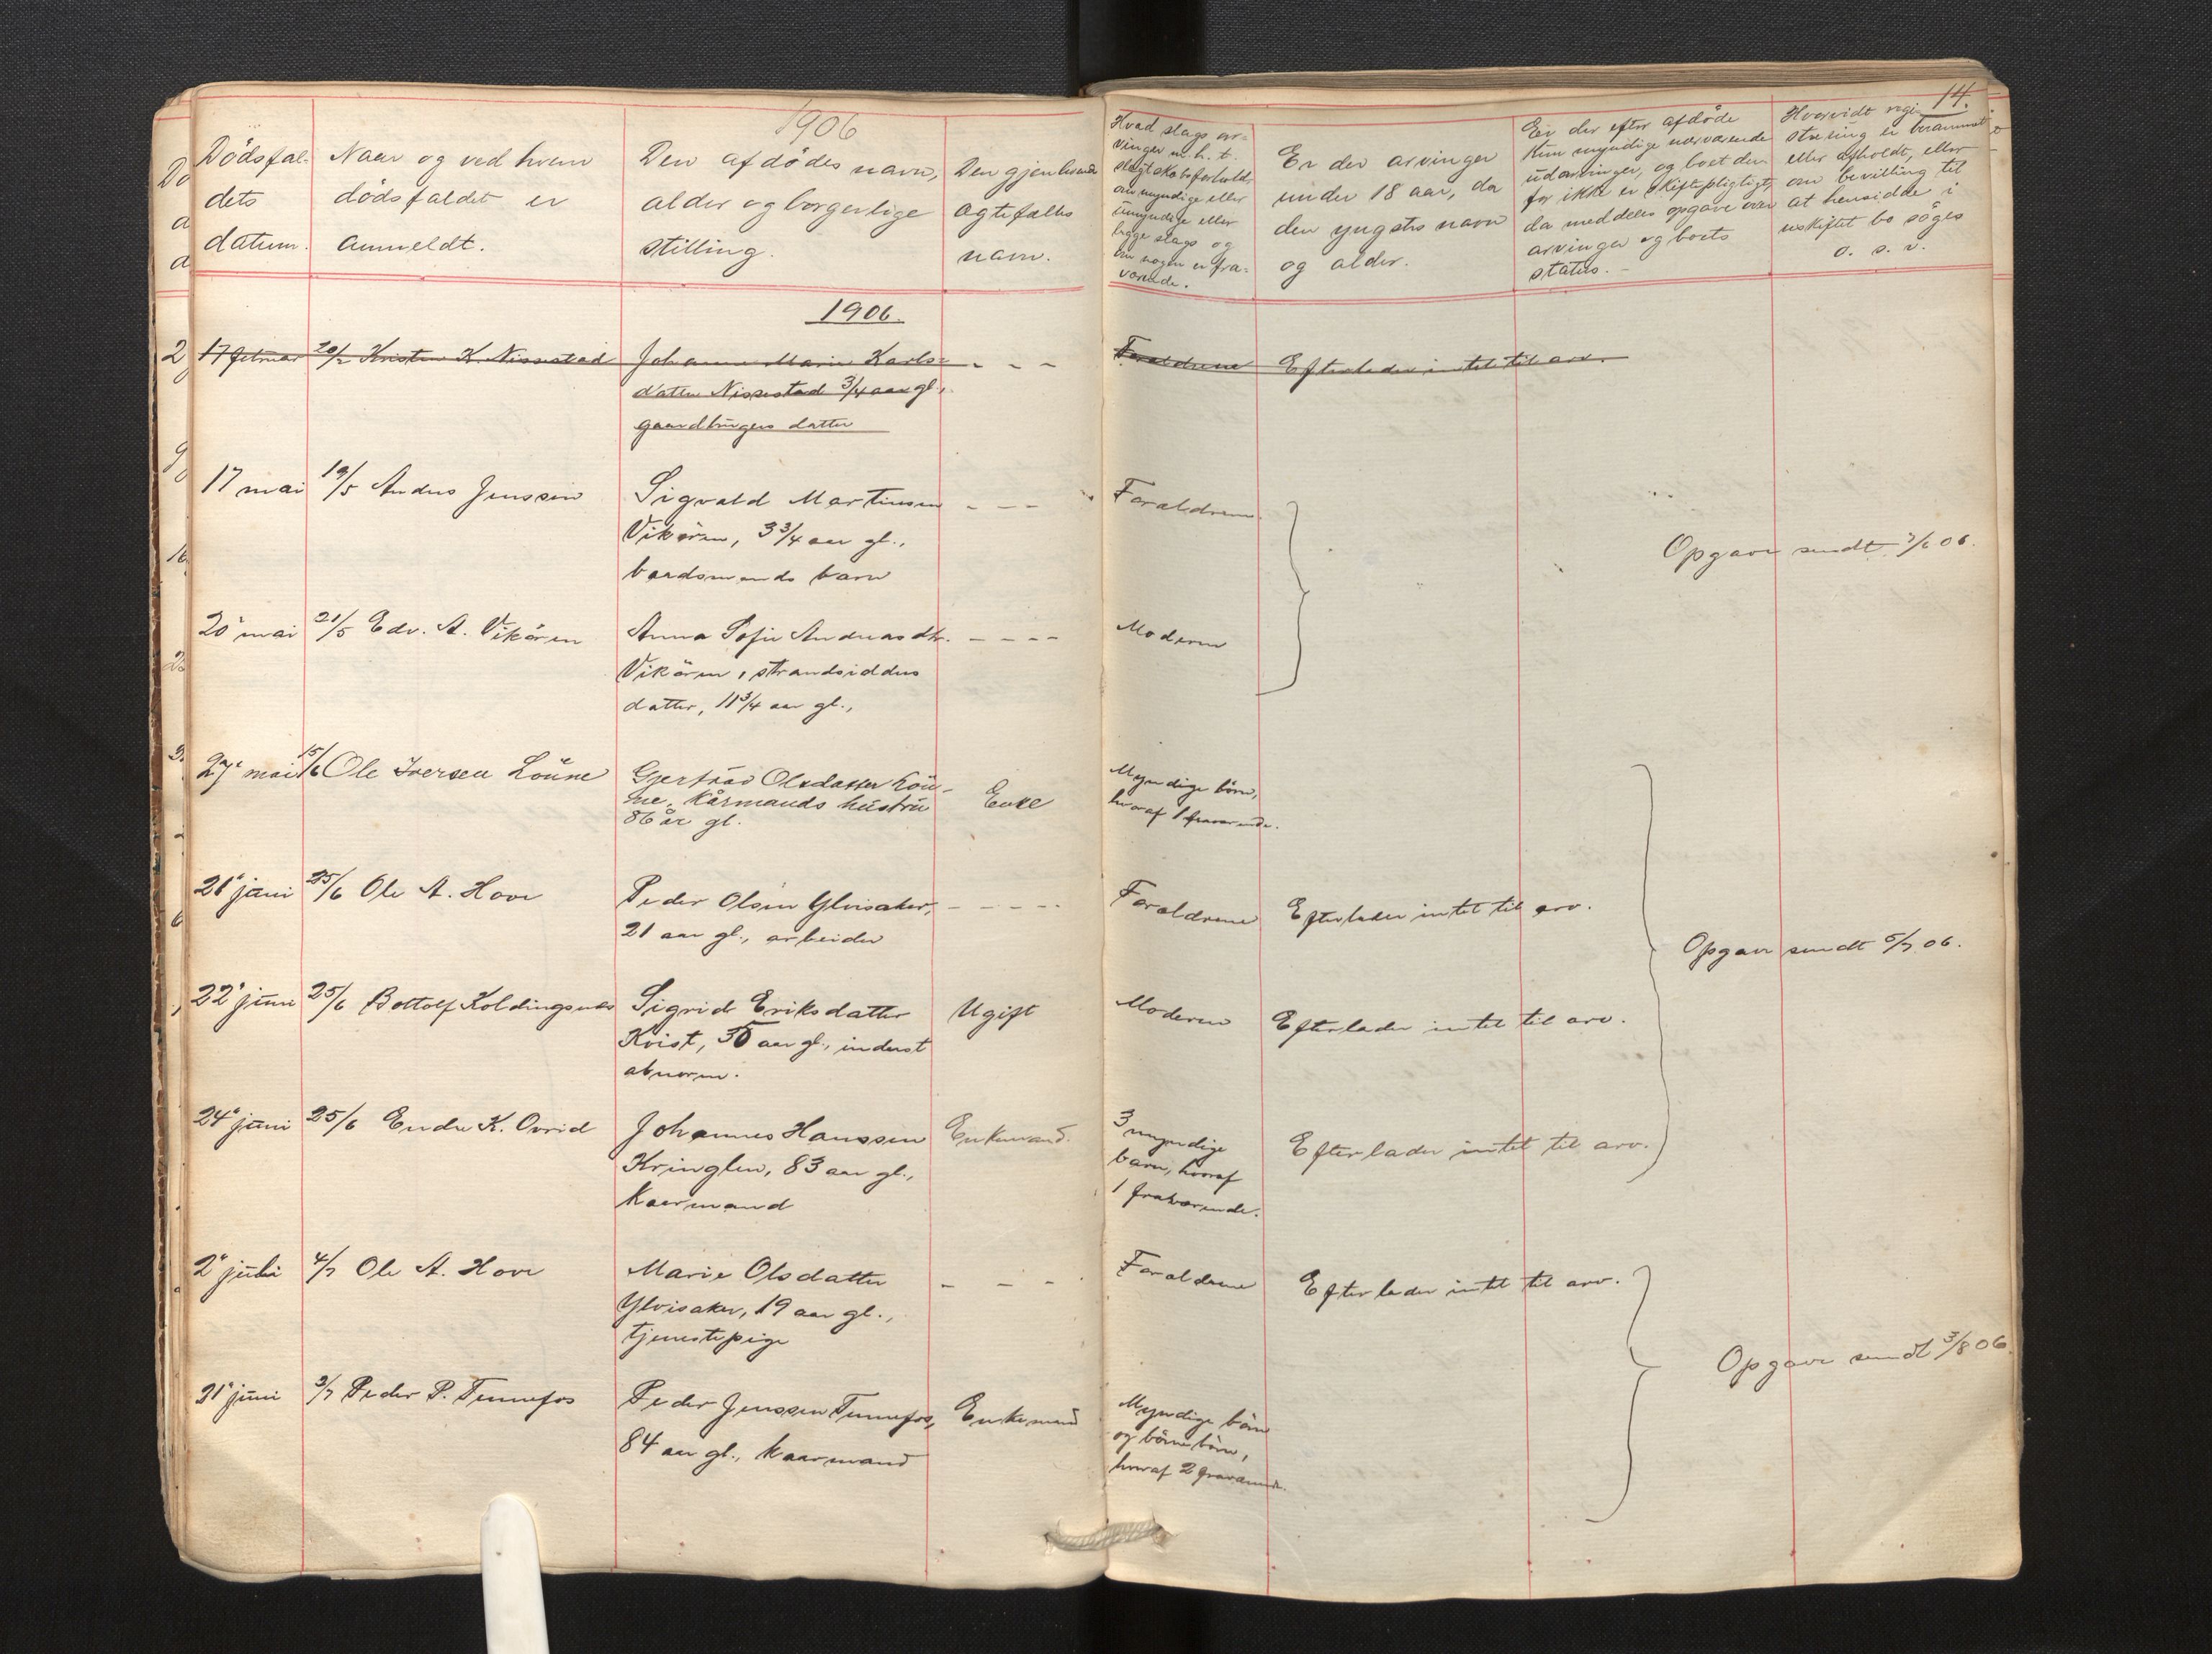 1906
14.
Dödsfal-
dets
datum.
Naar og ved hvem
dödsfaldet er
anmeldt.
Den afdödes navn,
alder og borgerlige
stilling.
Den gjenlevende
ægtefælles
navn.
Hvad slags ar-
vinger m. h. t.
slegtskabsforhold,
om myndige eller
umyndige eller
begge slags og
om nogen er fra-
værende.
Er der arvinger
under 18 aar, da
den yngstes navn
og alder.
Er der efter afdöde
kun myndige nærværende
udarvinger, og boet der-
for ikke er skiftepligtigt,
da meddeles opgave over
arvinger og boets
status.
Hvorvidt regi-
strering er berammet
eller afholdt, eller
om bevilling til
at hensidde i
uskiftet bo söges
o. s. v.
1906.
17 februar 20/2 Kristen K. Nissestad Johanne Marie Karls- - - - Forældrene Efterlader intet til arv.
datter Nissestad 3/4 aar gl.,
gaardbrugers datter
17 mai 19/5 Andres Jenssen Sigvald Martinsen - - - Forældrene
Vikören, 3 3/4 aar gl.,
baadsmands barn
Opgave sendt 06.
20 mai 21/5 Edv. A. Vikören Anna Sofie Andreasdtr. - - - - Moderen
Vikören, strandsidders
datter, 11 3/4 aar gl.,
27 mai 15/6 Ole Iversen Löüne Gjertrud Olsdatter Löü- Enke Myndige börn,
ne, kårmands hüstrü hvoraf 1 fraværende.
86 år gl.
21 juni 25/6 Ole A. Hove Peder Olsen Ylvisaker, - - - - - Forældrene Efterlader intet til arv.
21 aar gl., arbeider
Opgave sendt 5/7 06.
22 juni 25/6 Bottolf Koldingsnes Sigrid Eriksdatter Ugift Moderen Efterlader intet til arv.
Kvist, aar gl., inderst
abnorm.
24 juni 25/6 Endre K. Ovrid Johannes Hanssen Enkemand. 3 myndige Efterlader intet til arv.
Kringlen, 83 aar gl., barn, hvoraf
kaarmand 1 fraværende.
2 juli 4/7 Ole A. Hove Marie Olsdatter - - - Forældrene Efterlader intet til arv.
Ylvisaker, 19 aar gl.,
tjenestepige
Opgave sendt 3/8 06.
21 juni 3/7 Peder P. Tennefos Peder Jenssen Tennefos, Enkemand Myndige börn
84 aar gl., kaarmand og börnebörn,
hvoraf 2 fraværende.